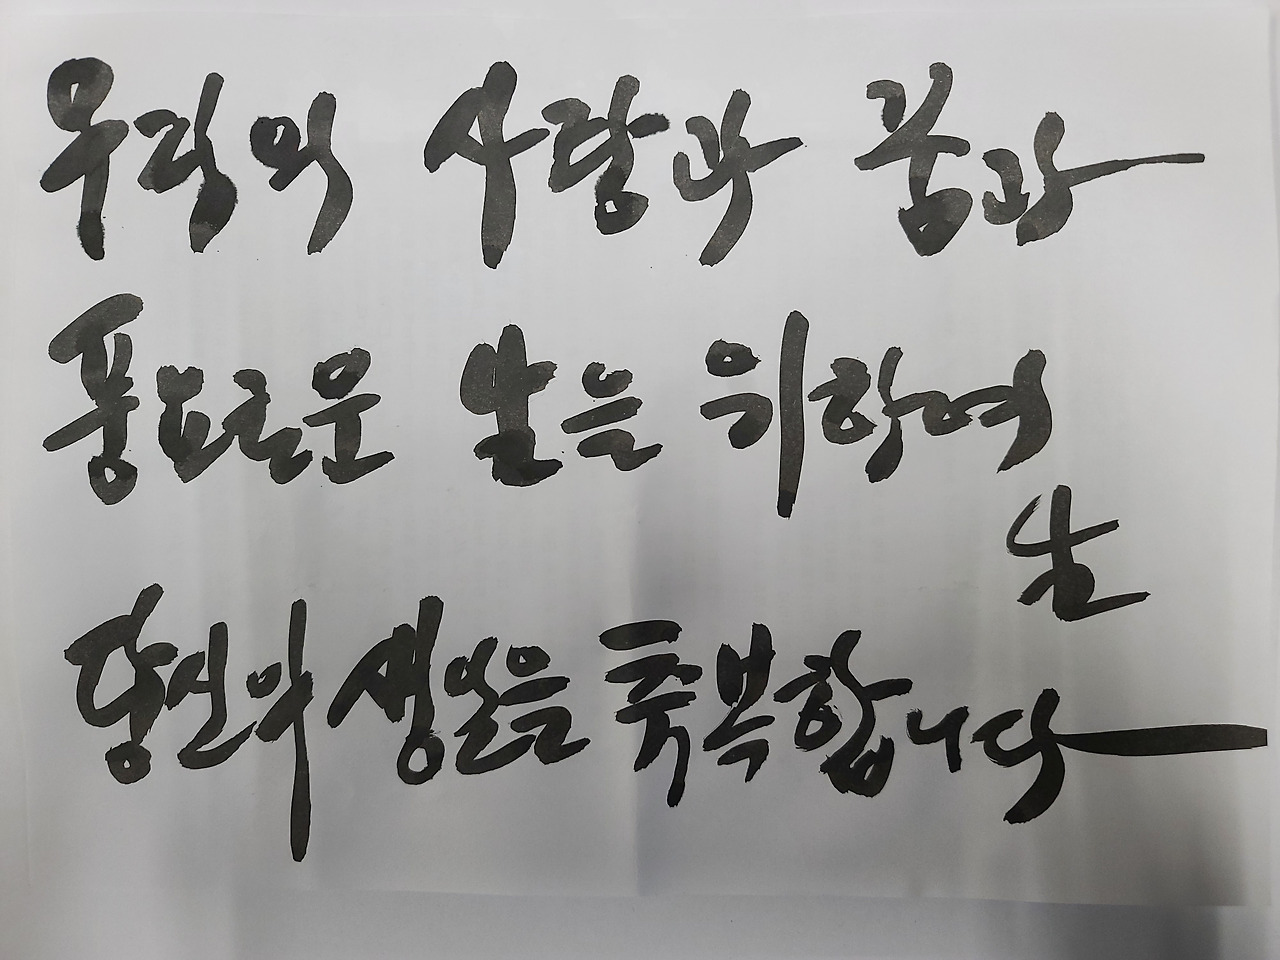 우리의 사랑과 꿈과
풍요로운 삶을 위하여
당신의 생일을 축복합니다